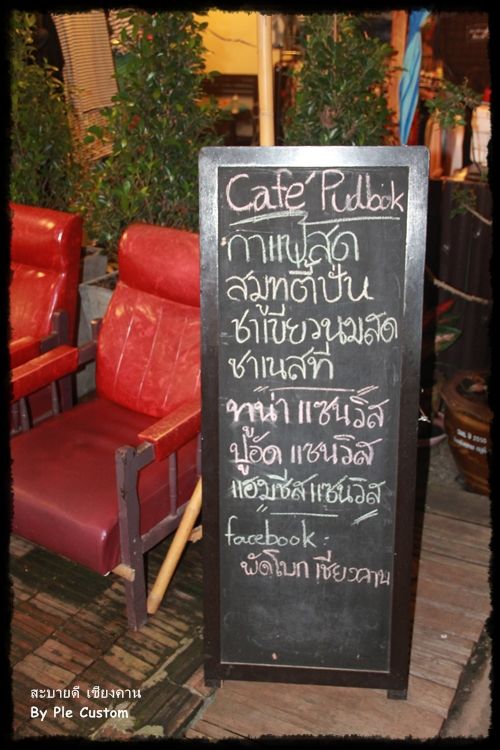 Café Pudbok
กาแฟสด
สมูทตี้ปั่น
ชาเขียวนมสด
ชาเนสที
ทูน่า แซนวิส
ปูอัด แซนวิส
แฮมชีส แซนวิส
facebook :
พัดโบก เชียงคาน
สะบายดี เชียงคาน
By Ple Custom